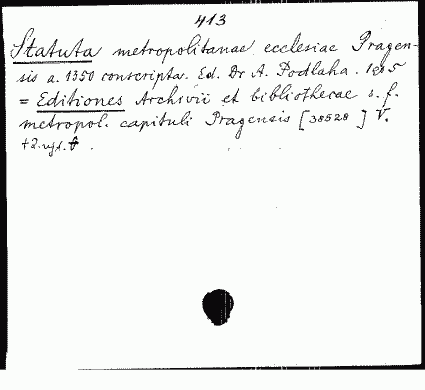 413
Statuta metropolitanae ecclesiae Pragen-
sis a. 1350 conscripta. Ed. Dr A. Podlaha. 1905
= Editiones Archivii et bibliothecae s. f.
metropol. capituli Pragensis [38528] V.
+2.